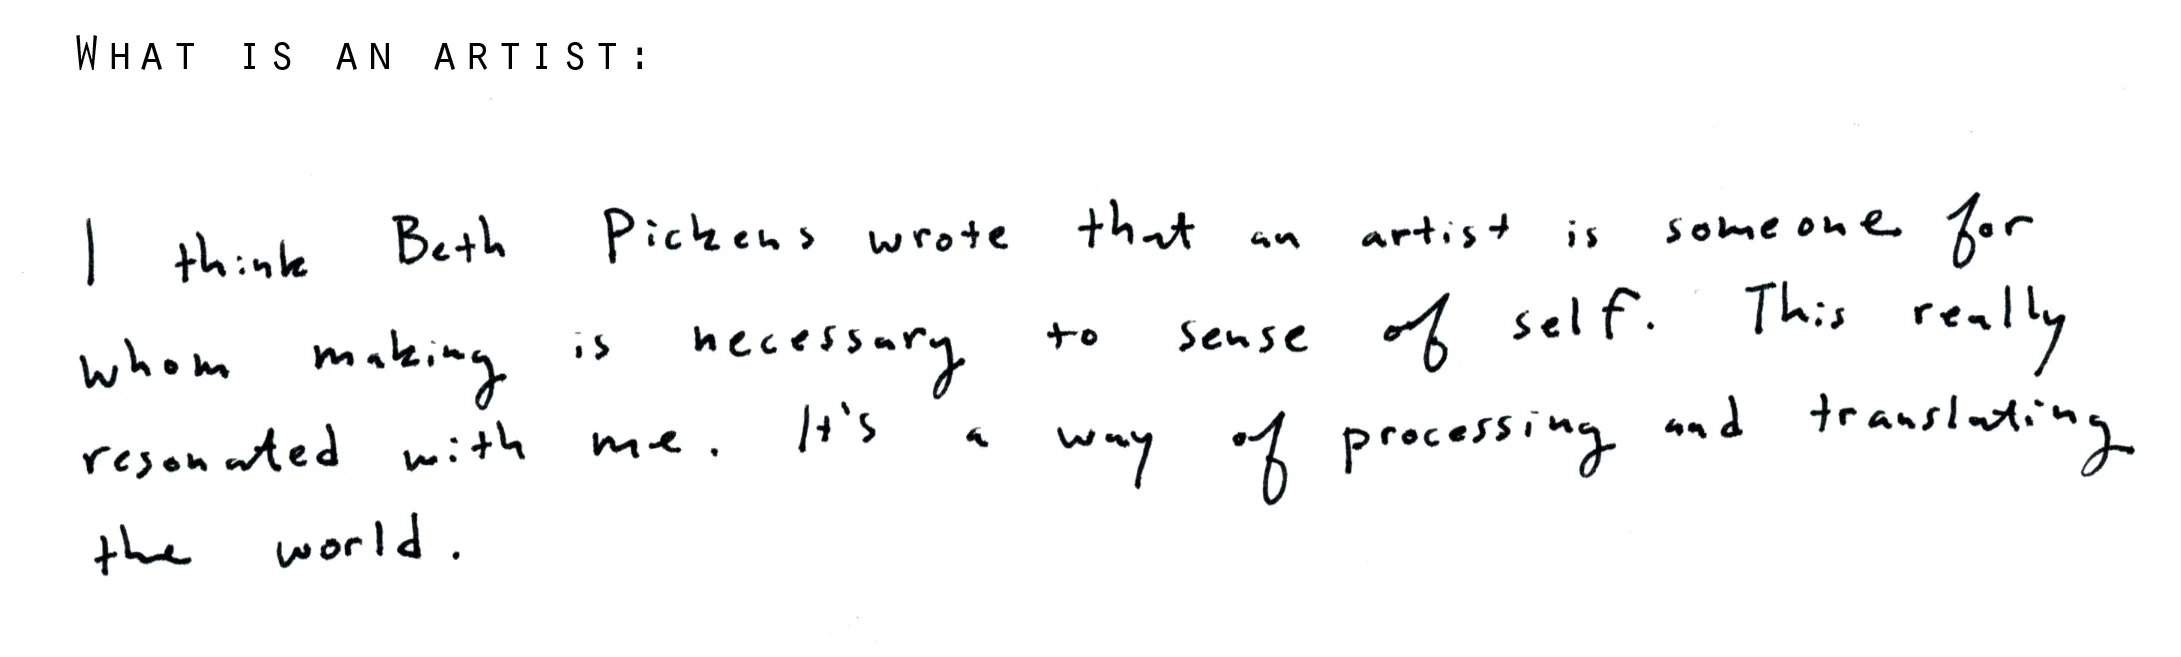 WHAT IS AN ARTIST:
I think Beth Pickens wrote that an artist is someone for
whom making is necessary to sense of self. This really
resonated with me. It's a way of processing and translating
the world.